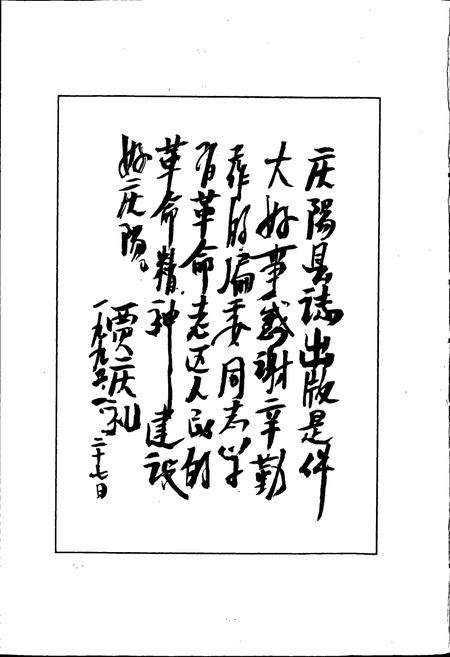 庆陽县誌出版是件
大好事感谢辛勤
工作的编委同志学
习革命老区人民的
革命精神建设
好庆陽。
贾庆礼
一九九三年一月二十七日